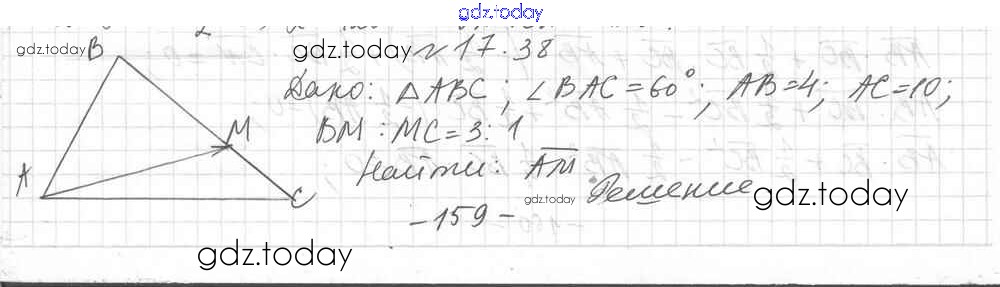 gdz.today
gdz.today B gdz.today № 17.38
Дано: △ABC; ∠BAC=60°; AB=4; AC=10;
BM:MC=3:1
M
Найти: AM
A
C
gdz.today Решение gdz.today
-159-
gdz.today